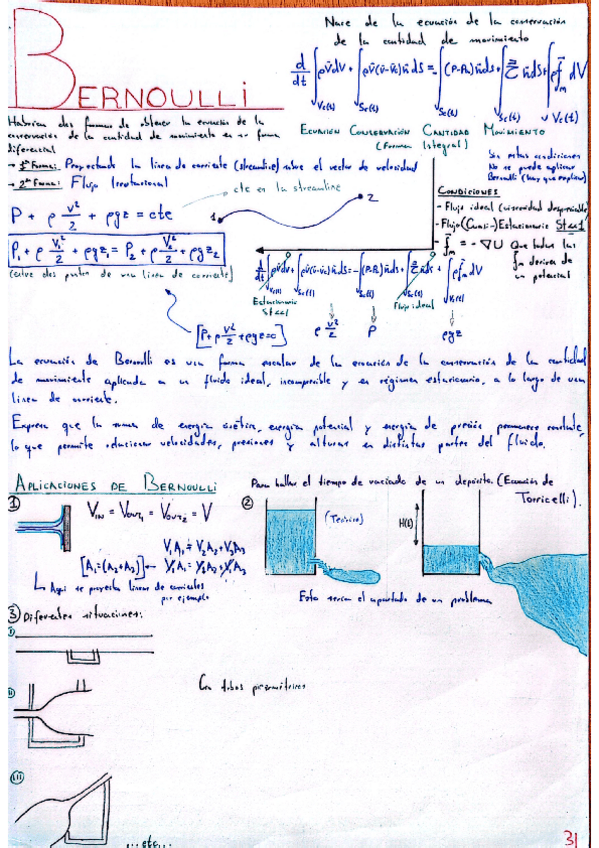 BERNOULLI
Nace de la ecuación de la conservación
de la cantidad de movimiento
d/dt ∫Vc(t) ρv̄dV + ∫Sc(t) ρv̄(v̄-v̄c)n̄dS = -∫Sc(t) (P-Pa)n̄dS + ∫Sc(t) τ̿ n̄dS + ∫Vc(t) ρf̄m dV
ECUACIÓN CONSERVACIÓN CANTIDAD MOVIMIENTO
(Forma Integral)
Habrían dos formas de obtener la ecuación de la
conservación de la cantidad de movimiento en su forma
diferencial
→ 1ª Forma: Proyectando la línea de corriente (streamline) sobre el vector de velocidad
→ 2ª Forma: Flujo Irrotacional
Sin estas condiciones
No se puede aplicar
Bernoulli (hay que explicar)
cte en la streamline
1
2
P + ρ v²/2 + ρgz = cte
P₁ + ρ V₁²/2 + ρgz₁ = P₂ + ρ V₂²/2 + ρgz₂
(entre dos puntos de una línea de corriente)
CONDICIONES
- Flujo ideal (viscosidad despreciable)
- Flujo (Cuasi-)Estacionario St≪1
- f̄m = -∇U Que todas las
f̄m deriven de
un potencial
d/dt ∫Vc(t) ρv̄dV + ∫Sc(t) ρv̄(v̄-v̄c)n̄dS = -∫Sc(t) (P-Pa)n̄dS + ∫Sc(t) τ̿ n̄dS + ∫Vc(t) ρf̄m dV
Estacionario
St≪1
Flujo ideal
[P + ρ v²/2 + ρgz = C]
ρ v²/2
P
ρgz
La ecuación de Bernoulli es una forma escalar de la ecuación de la conservación de la cantidad
de movimiento aplicada a un fluido ideal, incompresible y en régimen estacionario, a lo largo de una
línea de corriente.
Expresa que la suma de energía cinética, energía potencial y energía de presión permanece constante,
lo que permite relacionar velocidades, presiones y alturas en distintas partes del fluido.
APLICACIONES DE BERNOULLI
1
VIN = VOUT₁ = VOUT₂ = V
V₁A₁ = V₂A₂ + V₃A₃
[A₁=(A₂+A₃)] ← V₁A₁ = V₂A₂ + V₃A₃
↳ Aquí se proyecta líneas de corrientes
por ejemplo
2
Para hallar el tiempo de vaciado de un depósito. (Ecuación de
Torricelli).
(Teórico)
H(t)
Esto sería el apartado de un problema
3 Diferentes situaciones:
i
ii
Con tubos piezométricos
iii
...etc...
31